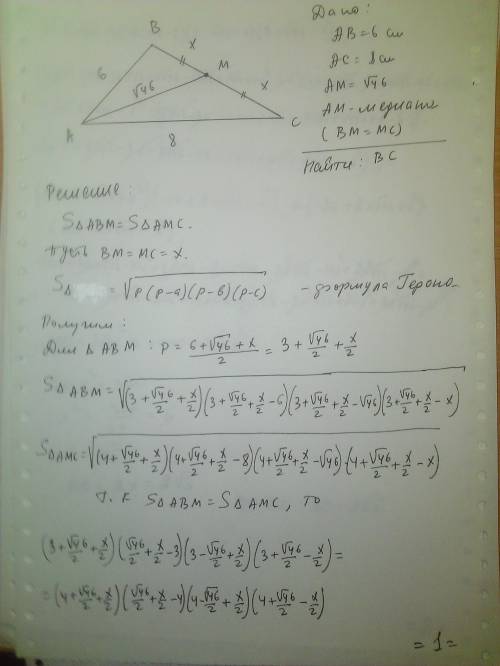 Дано:
AB = 6 см
AC = 8 см
AM = √46
AM - медиана
(BM = MC)
Найти: BC
B
x
M
6
√46
x
A
C
8
Решение:
S△ABM = S△AMC.
Пусть BM = MC = x.
S△ = √(p(p-a)(p-в)(p-c)) - формула Герона
Получим:
Для △ABM: p = (6+√46+x)/2 = 3 + √46/2 + x/2
S△ABM = √((3+√46/2+x/2)(3+√46/2+x/2-6)(3+√46/2+x/2-√46)(3+√46/2+x/2-x))
S△AMC = √((4+√46/2+x/2)(4+√46/2+x/2-8)(4+√46/2+x/2-√46)·(4+√46/2+x/2-x))
Т.к S△ABM = S△AMC, то
(3+√46/2+x/2)(√46/2+x/2-3)(3-√46/2+x/2)(3+√46/2-x/2) =
= (4+√46/2+x/2)(√46/2+x/2-4)(4-√46/2+x/2)(4+√46/2-x/2)
= 1 =